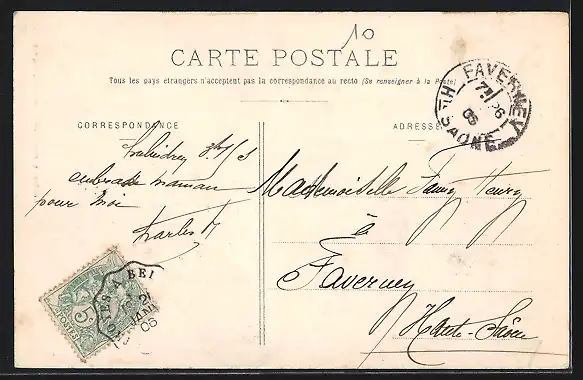 10
CARTE POSTALE
Tous les pays étrangers n'acceptent pas la correspondance au recto (Se renseigner à la Poste)
CORRESPONDANCE
ADRESSE
FAVERNEY
Hte SAONE
embrasse maman
pour moi
Charles H
Mademoiselle Fanny Henry
à
Faverney
Haute-Saône
5
POSTES